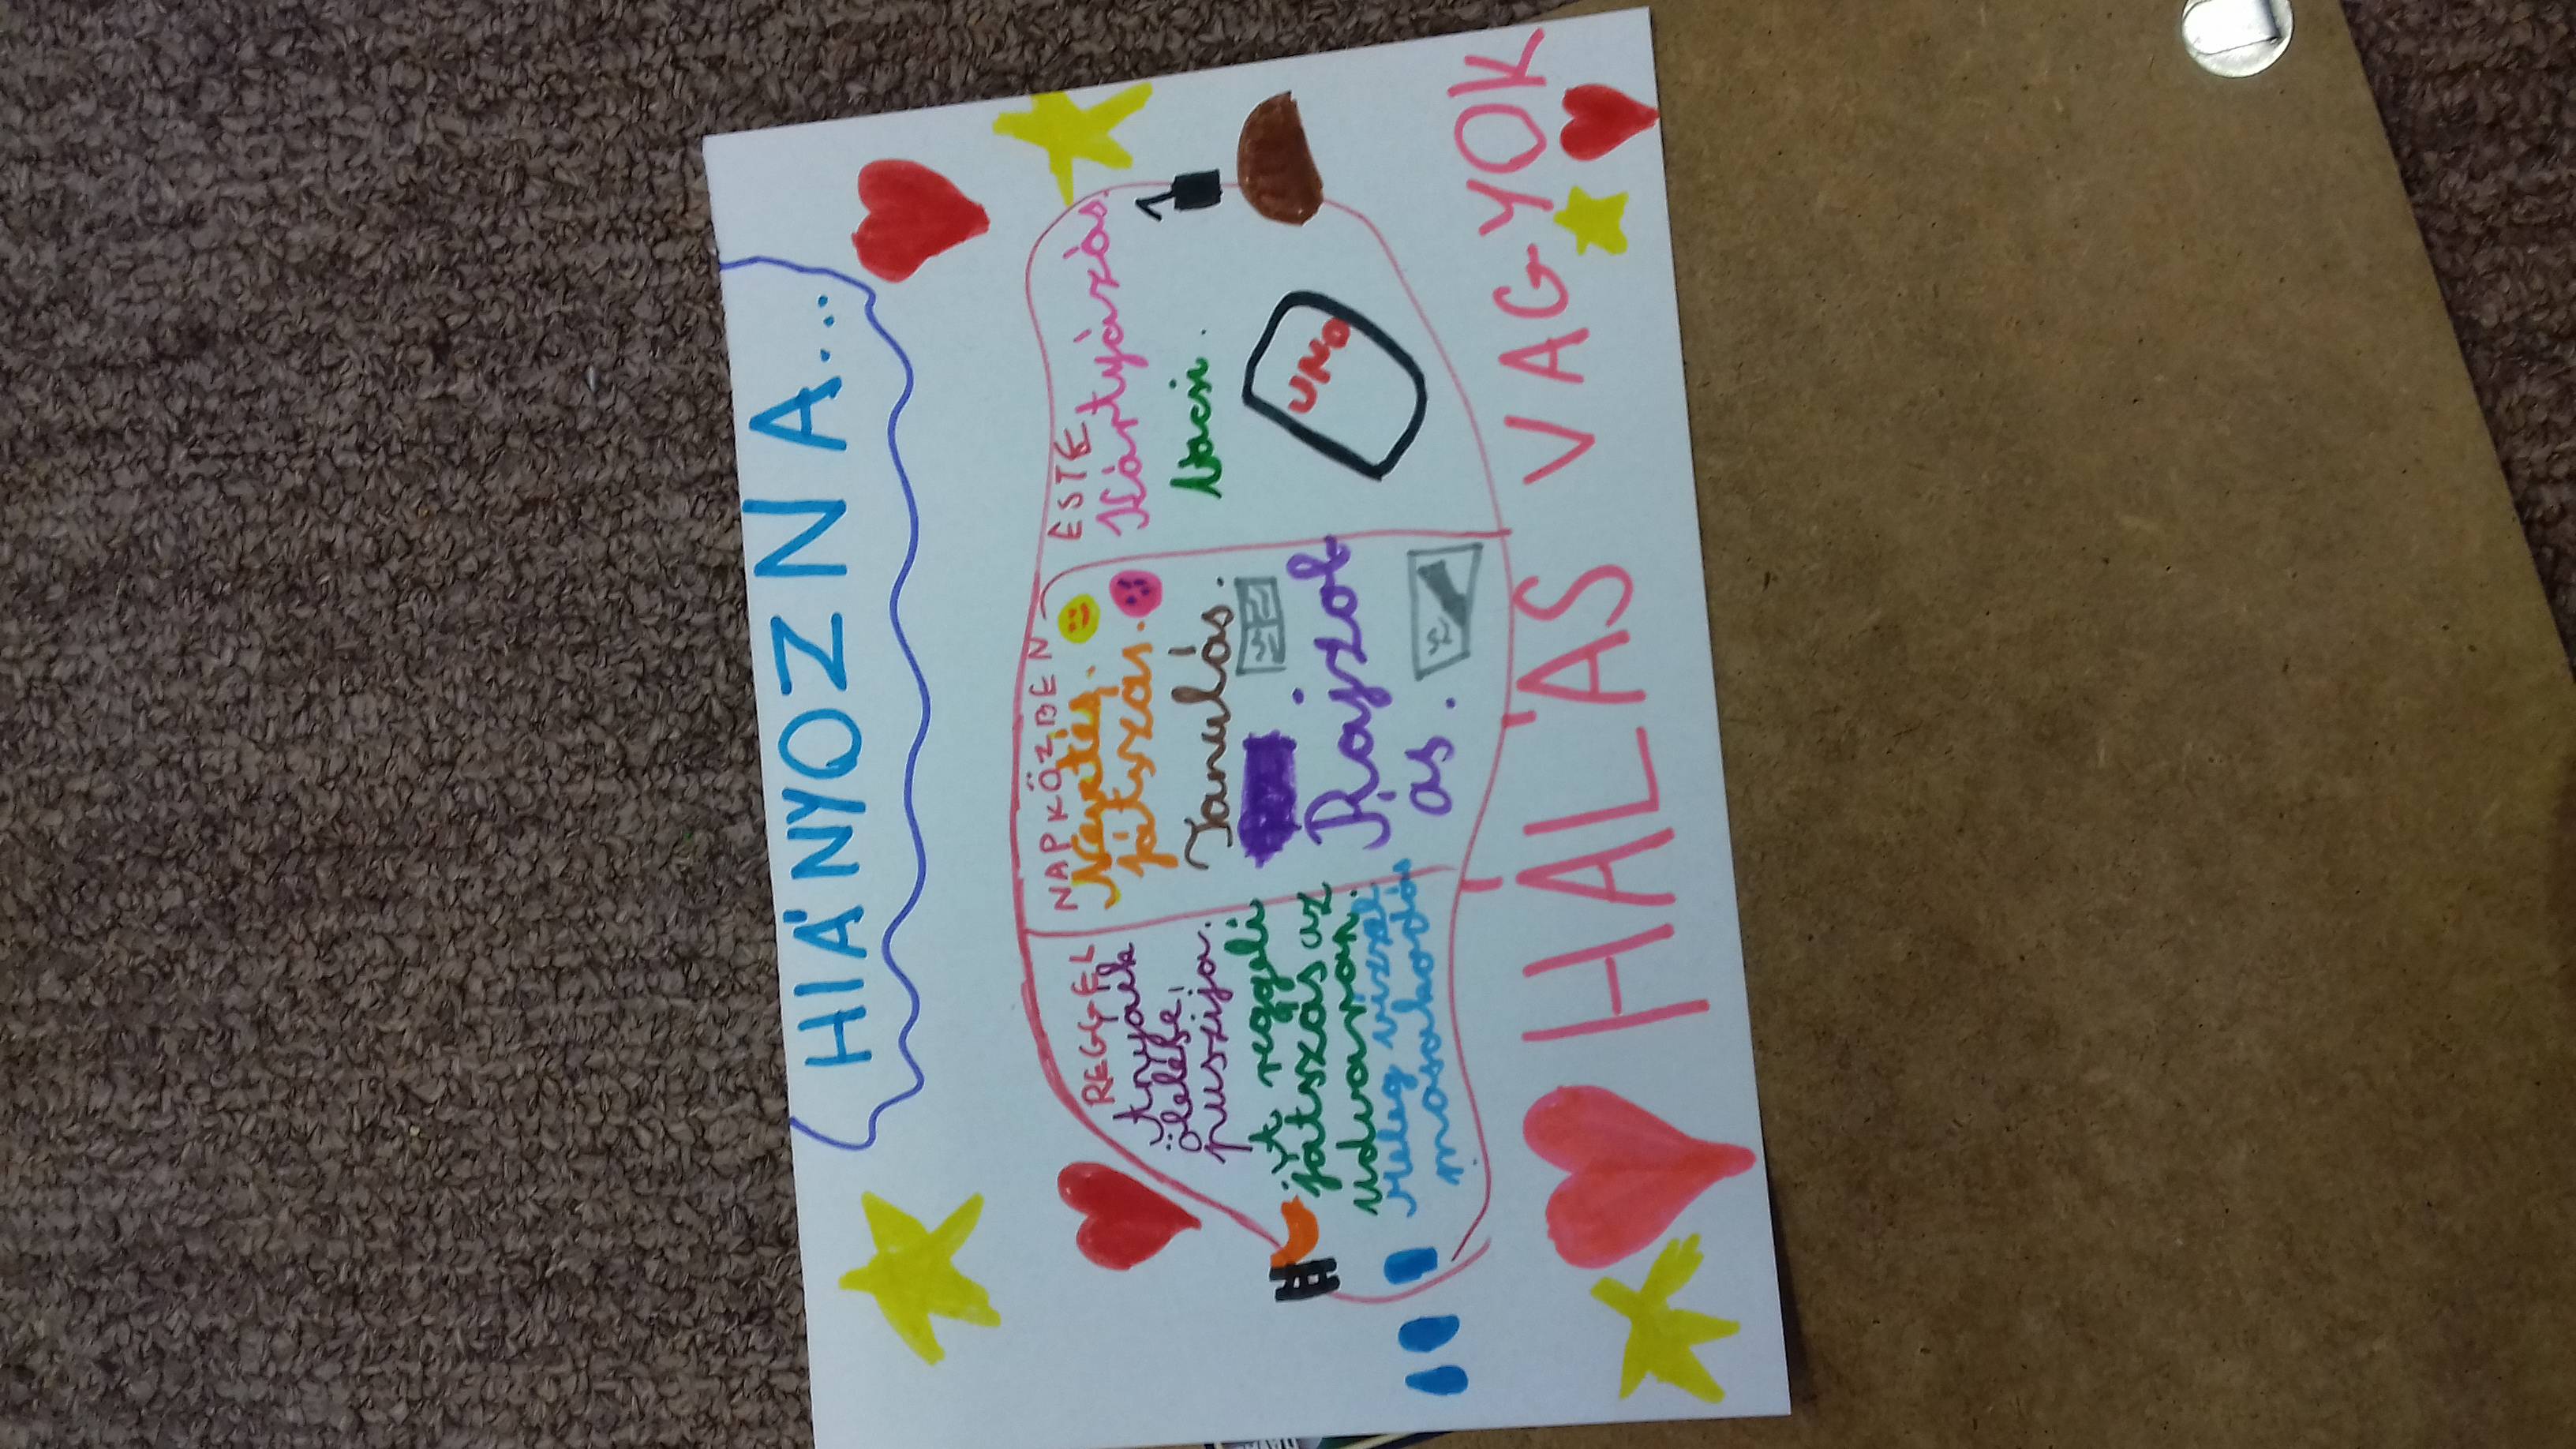 HIÁNYOZNA A...
REGGEL
Anyáék
ölelése,
puszija.
A reggeli
játszás az
udvaron.
Meleg vízzel
mosakodás
NAPKÖZBEN
Nevetés.
játszás.
Tanulás.
Rajzol
ás.
ESTE
Kártyázás.
Vacsi.
UNO
HÁLÁS VAGYOK